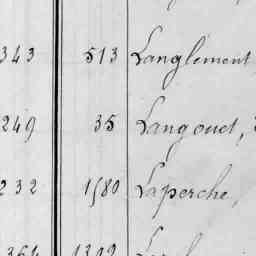 343 513 Langlement
249 35 Langouet,
232 1580 Laperche,
364